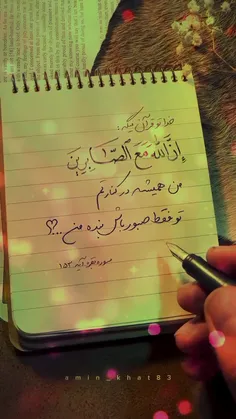 خدا تو قرآن میگه:
إِنَّ اللَّهَ مَعَ الصَّابِرِينَ
من همیشه در کنارتم
تو فقط صبور باش بنده من ...♡
سوره بقره آیه ۱۵۳
amin_khat83